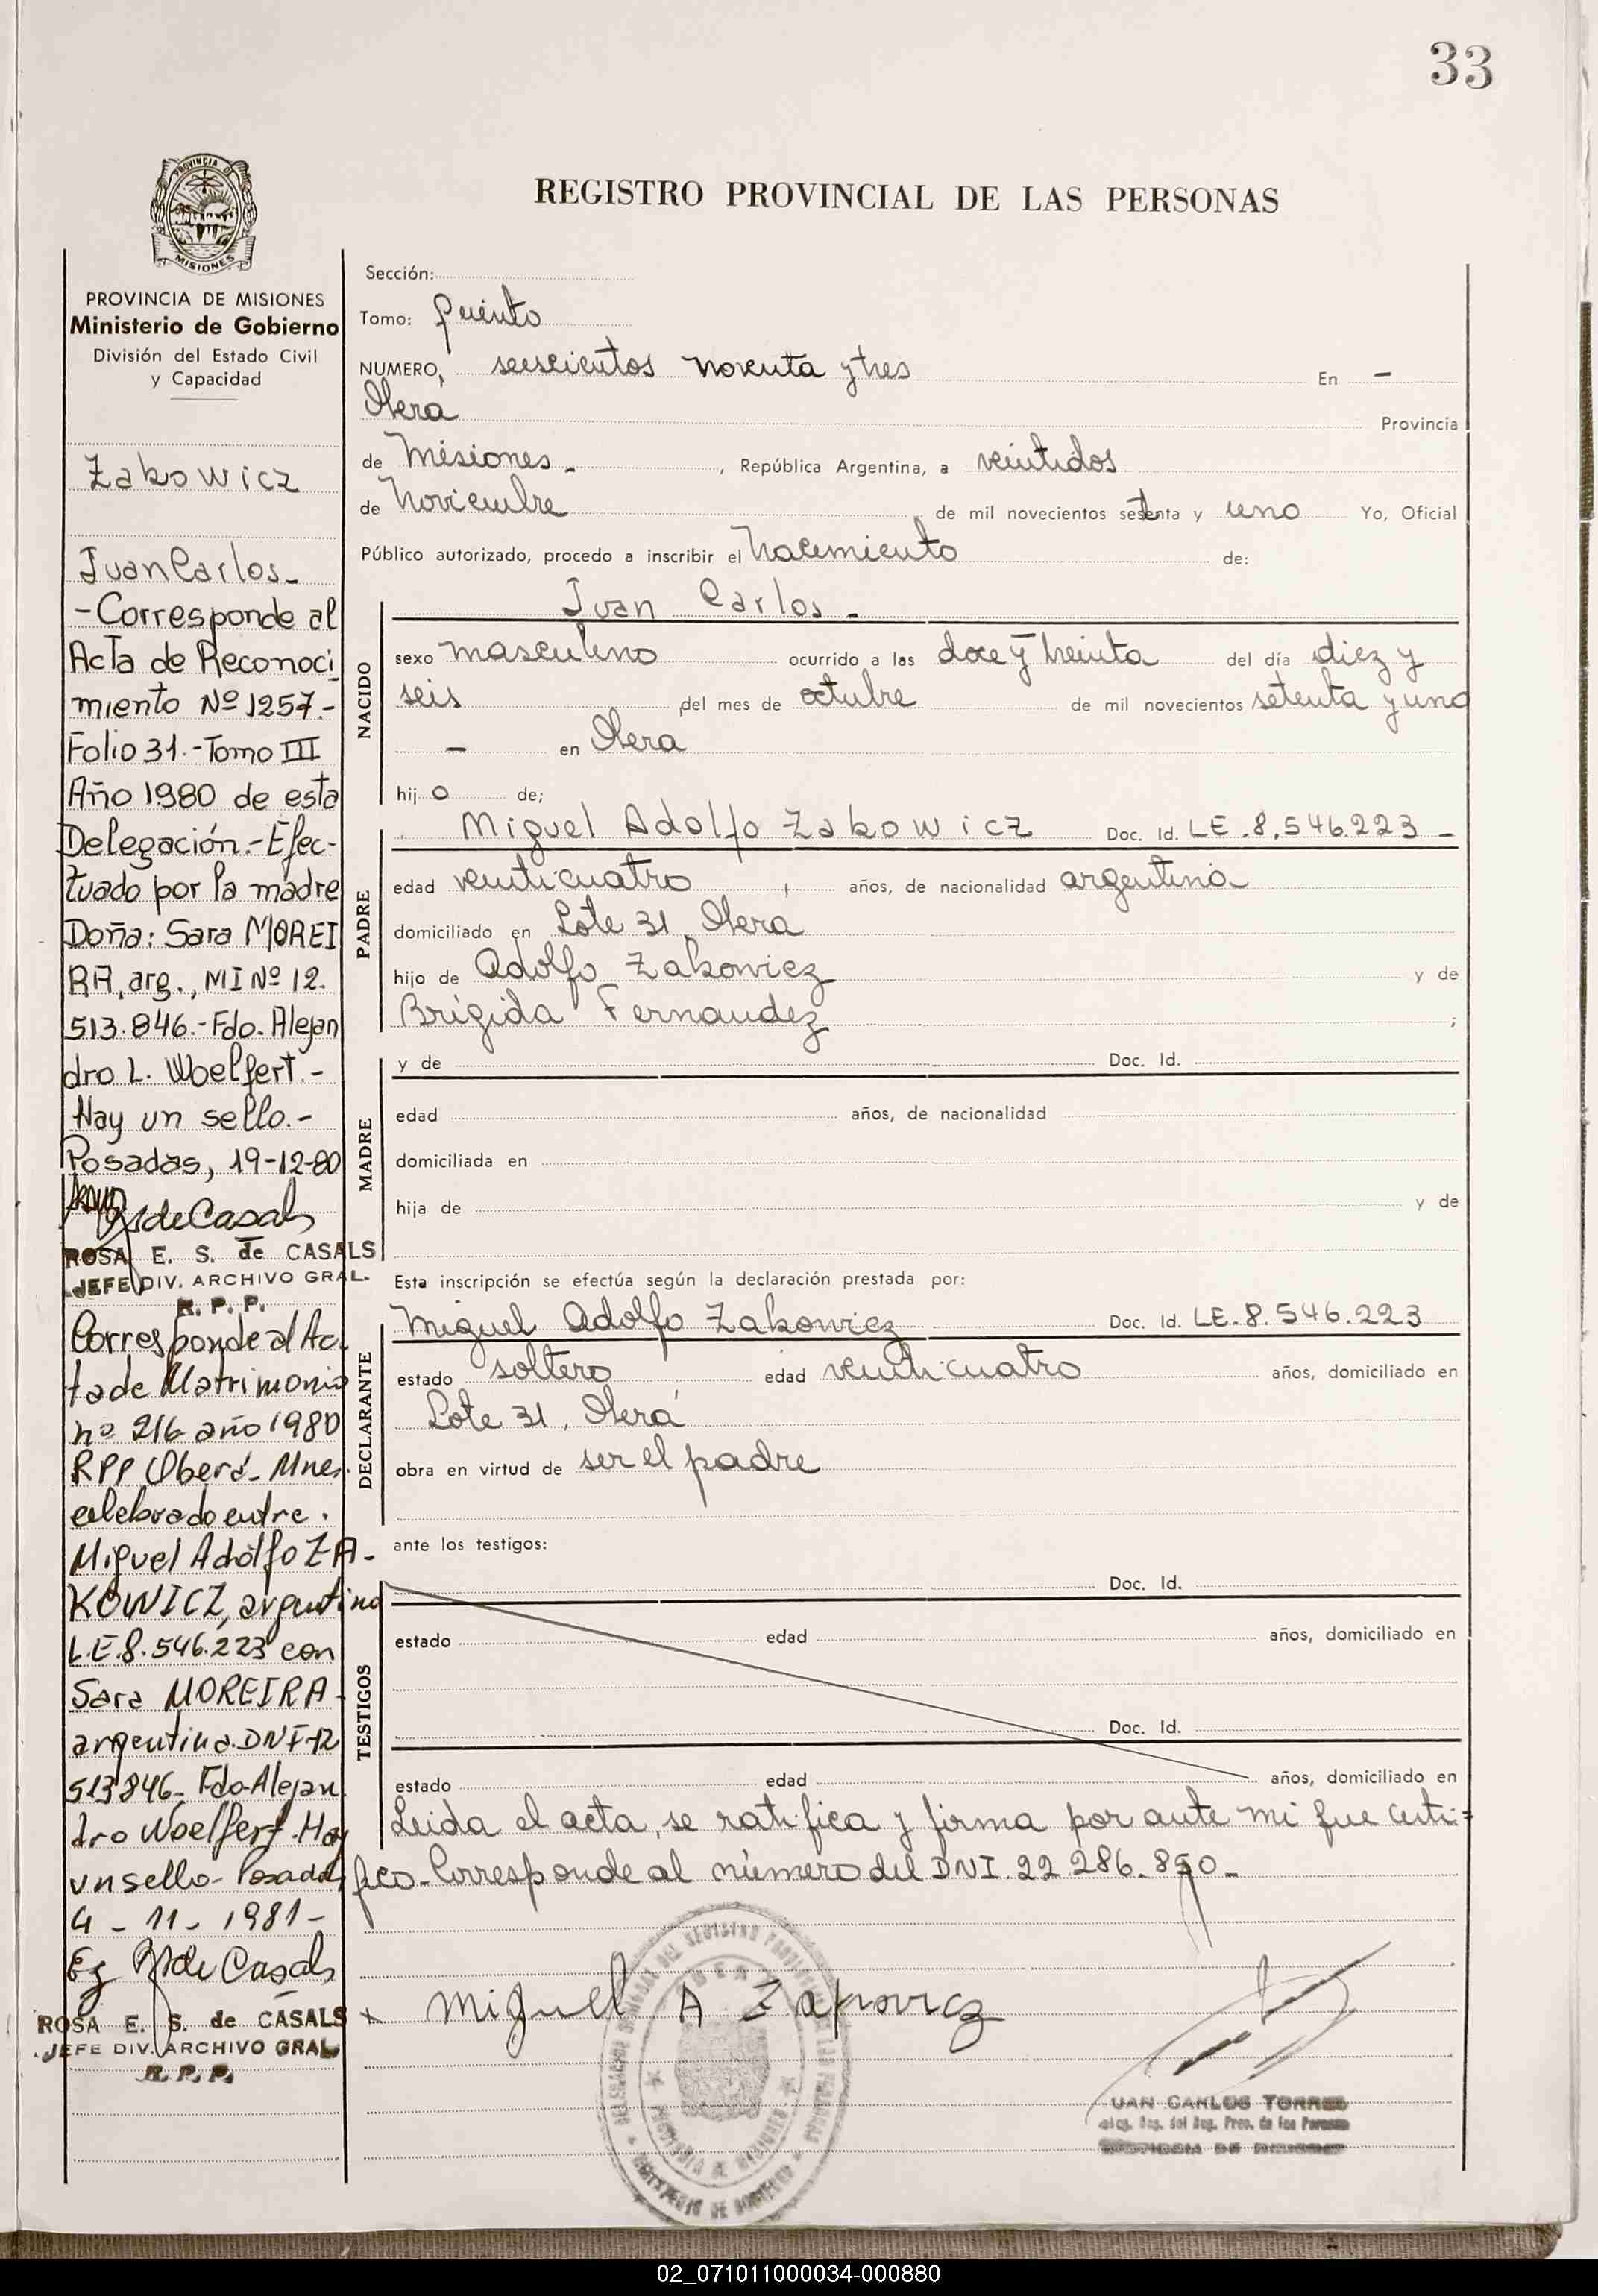 33
PROVINCIA DE
MISIONES
REGISTRO PROVINCIAL DE LAS PERSONAS
PROVINCIA DE MISIONES
Ministerio de Gobierno
División del Estado Civil
y Capacidad
Zakowicz
Juan Carlos-
-Corresponde al
Acta de Reconoci
miento Nº 1257.-
Folio 31.-Tomo III
Año 1980 de esta
Delegación.-Efec-
tuado por la madre
Doña: Sara MOREI
RA, arg., MI Nº 12.
513.846.-Fdo. Alejan
dro L. Woelfert.-
Hay un sello.-
Posadas, 19-12-80
de Casals
ROSA E. S. de CASALS
JEFE DIV. ARCHIVO GRAL.
R. P. P.
Corresponde al Ac
ta de Matrimonio
nº 216 año 1980
RPP Oberá- Mnes.
celebrado entre.
Miguel Adolfo ZA-
KOWICZ, argentino
L.E.8.546.223 con
Sara MOREIRA-
argentina. DNI-12
513846- Fdo-Alejan
dro Woelfert-Hay
un sello- Posadas
4 - 11 - 1981-
de Casals
ROSA E. S. de CASALS
JEFE DIV. ARCHIVO GRAL
R. P. P.
Sección:
Tomo: quinto
NUMERO, seiscientos noventa y tres En -
Obera Provincia
de Misiones - , República Argentina, a veintidos
de Noviembre de mil novecientos setenta y uno Yo, Oficial
Público autorizado, procedo a inscribir el Nacimiento de:
Juan Carlos -
NACIDO
sexo masculino ocurrido a las doce y treinta del día diez y
seis del mes de octubre de mil novecientos setenta y uno
- en Obera
hij o de;
PADRE
Miguel Adolfo Zakowicz Doc. Id. LE.8.546.223-
edad veinticuatro , años, de nacionalidad argentina
domiciliado en Lote 31, Oberá
hijo de Adolfo Zakowicz y de
Brígida Fernandez ;
MADRE
y de Doc. Id.
edad años, de nacionalidad
domiciliada en
hija de y de
Esta inscripción se efectúa según la declaración prestada por:
DECLARANTE
Miguel Adolfo Zakowicz Doc. Id. LE.8.546.223
estado soltero edad veinticuatro años, domiciliado en
Lote 31, Oberá
obra en virtud de ser el padre
ante los testigos:
TESTIGOS
Doc. Id.
estado edad años, domiciliado en
Doc. Id.
estado edad años, domiciliado en
Leida el acta, se ratifica y firma por ante mi que certi-
fico-Corresponde al número del DNI.22.286.890-
Miguel A Zakovicz
JUAN CARLOS TORRES
del Reg. Prov. de las Personas
02_071011000034-000880